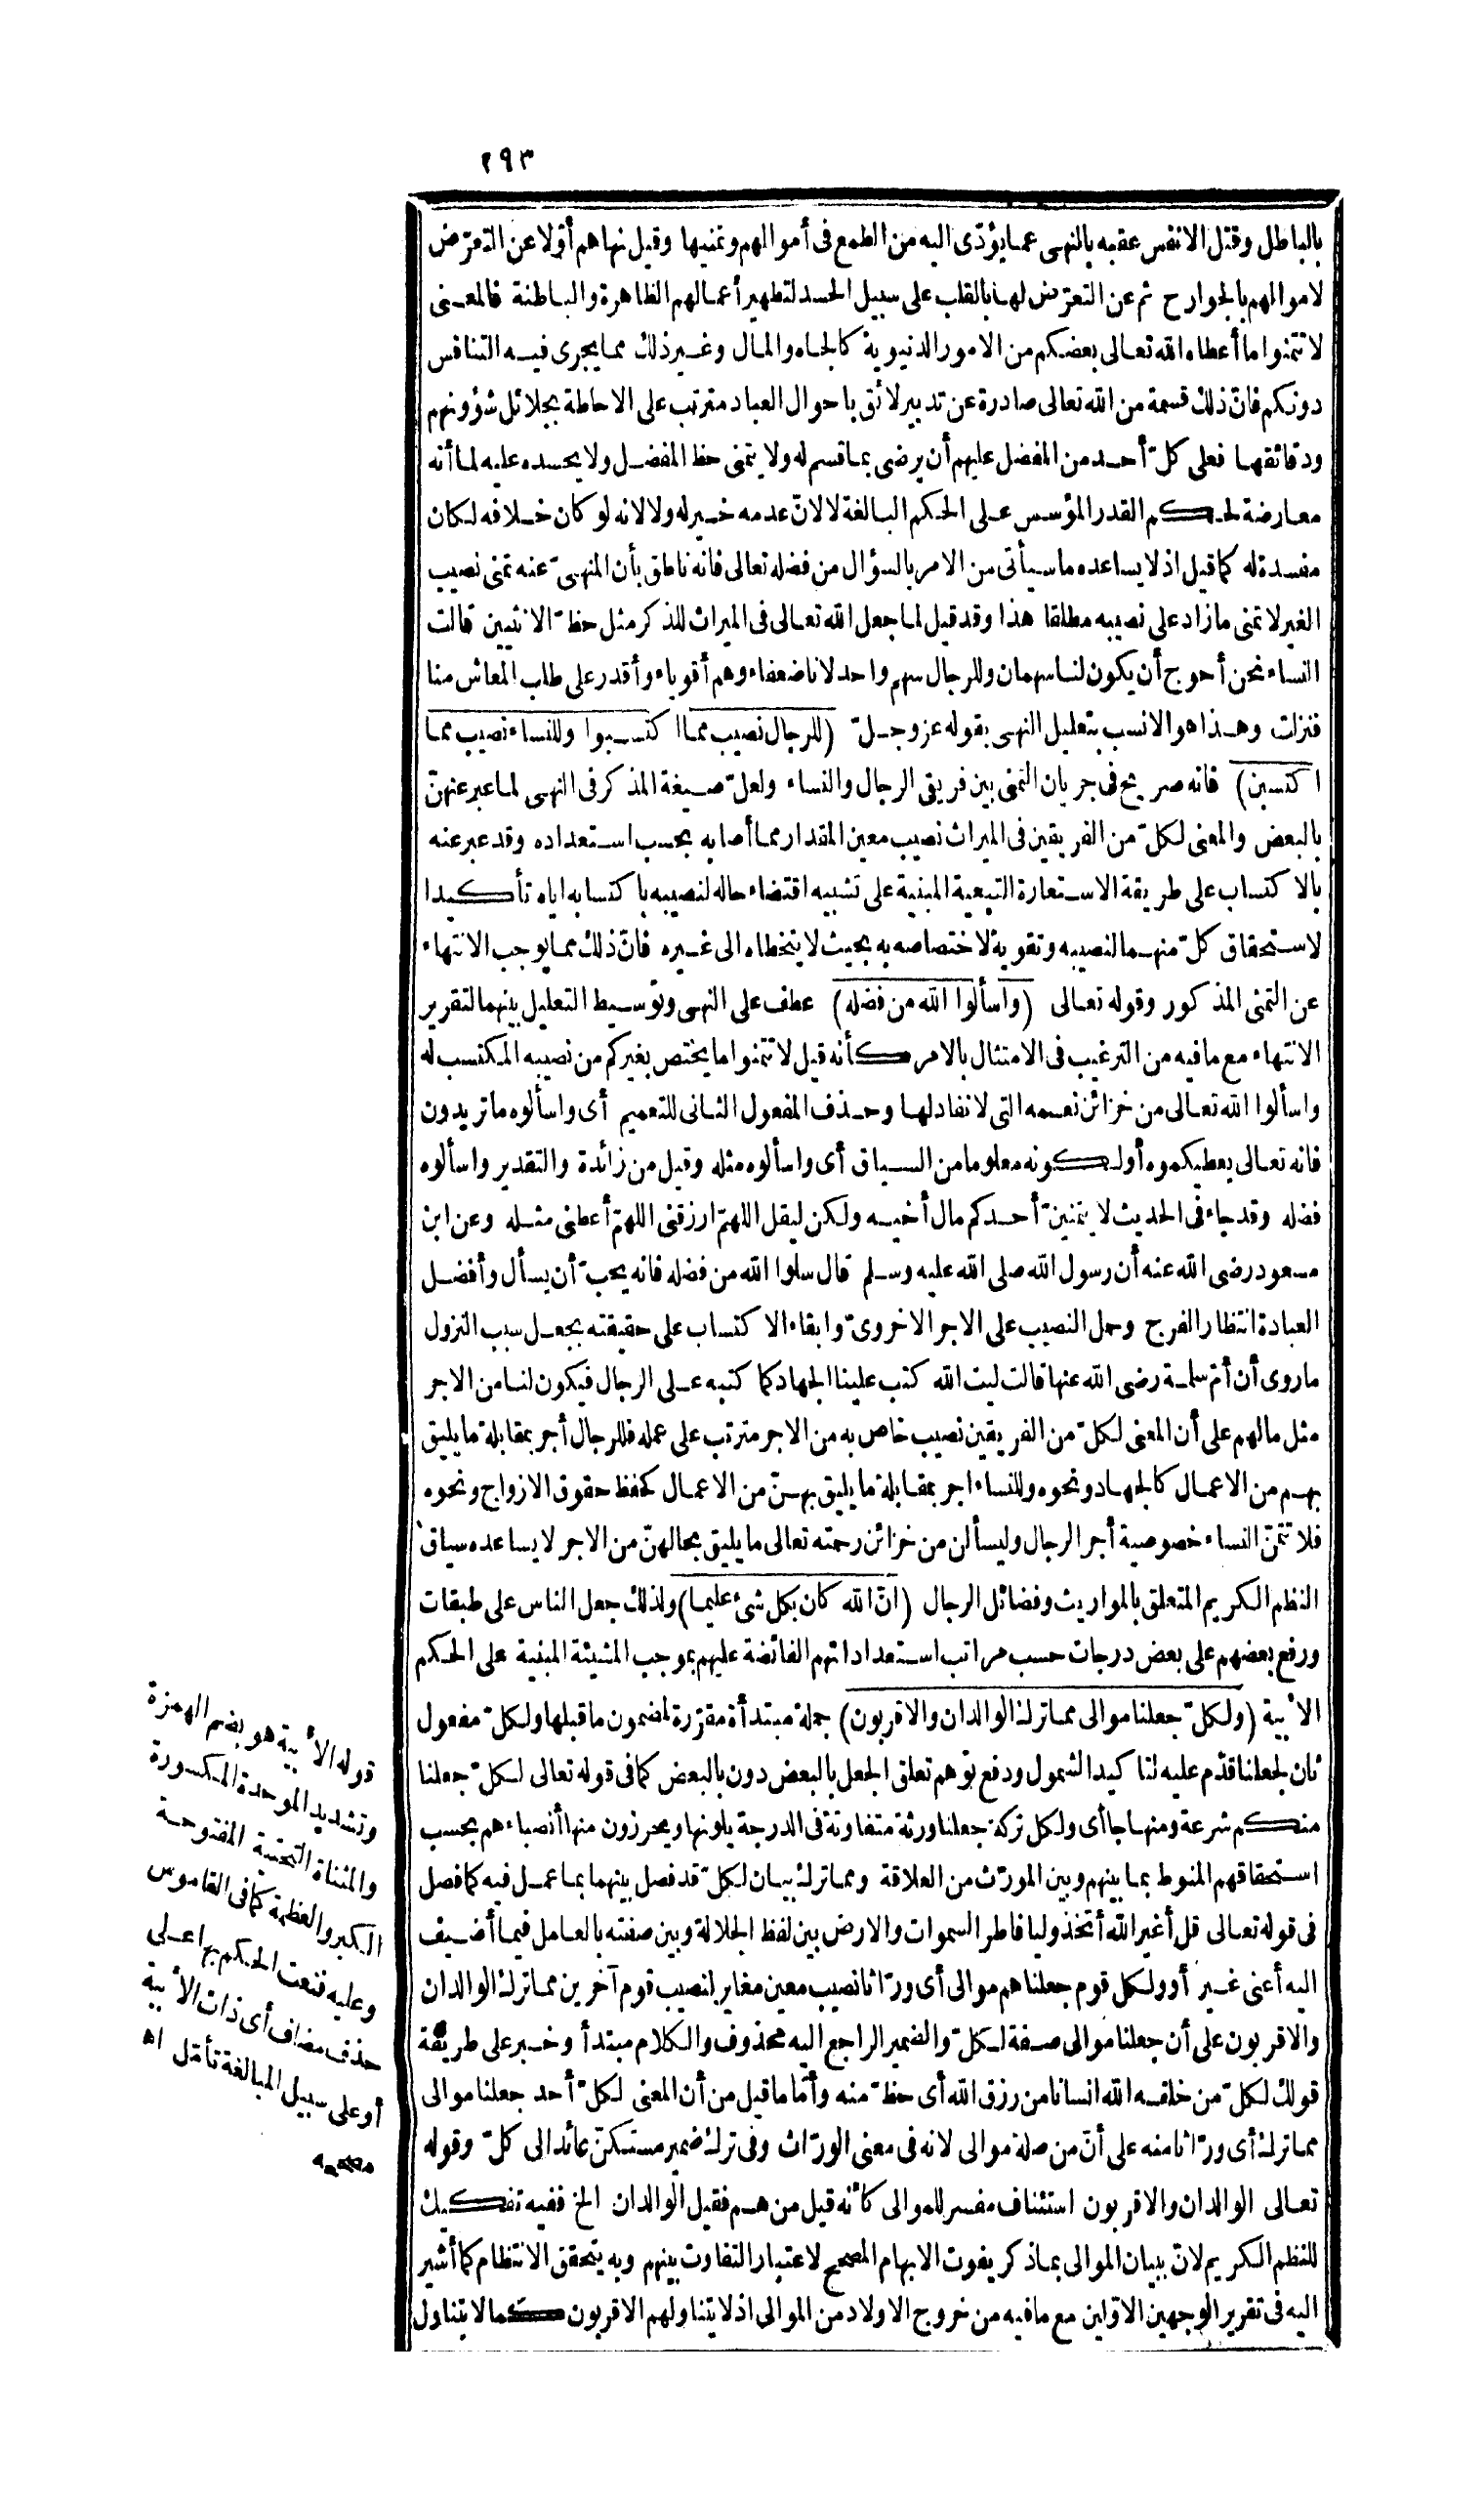 ٢٩٣
بالباطل وقتل الانفس عقبه بالنهى عما يؤدّى اليه من الطمع فى أموالهم وتمنيها وقيل نهاهم أوّلا عن التعرّض
لاموالهم بالجوارح ثم عن التعرّض لها بالقلب على سبيل الحسد لتطهير أعمالهم الظاهرة والباطنة فالمعنى
لا تتمنوا ما أعطاه الله تعالى بعضكم من الامور الدنيوية كالجاه والمال وغير ذلك مما يجرى فيه التنافس
دونكم فانّ ذلك قسمة من الله تعالى صادرة عن تدبير لائق باحوال العباد مترتب على الاحاطة بجلائل شؤونهم
ودقائقها فعلى كلّ أحد من المفضل عليهم أن يرضى بما قسم له ولا يتمنى حظ المفضل ولا يحسده عليه لما أنه
معارضة لحكم القدر المؤسس على الحكم البالغة لا لانّ عدمه خير له ولا لانه لو كان خلافه لكان
مفسدة له كما قيل اذ لا يساعده ما سيأتى من الامر بالسؤال من فضله تعالى فانه ناطق بأن المنهىّ عنه تمنى نصيب
الغير لا تمنى ما زاد على نصيبه مطلقا هذا وقد قيل لما جعل الله تعالى فى الميراث للذكر مثل حظّ الانثيين قالت
النساء نحن أحوج أن يكون لنا سهمان وللرجال سهم واحد لانا ضعفاء وهم أقوياء وأقدر على طلب المعاش منا
فنزلت وهذا هو الانسب بتعليل النهى بقوله عز وجلّ (للرجال نصيب مما اكتسبوا وللنساء نصيب مما
اكتسبن) فانه صريح فى جريان التمنى بين فريقى الرجال والنساء ولعلّ صيغة المذكر فى النهى لما عبر عنهنّ
بالبعض والمعنى لكلّ من الفريقين فى الميراث نصيب معين المقدار مما أصابه بحسب استعداده وقد عبر عنه
بالاكتساب على طريقة الاستعارة التبعية المبنية على تشبيه اقتضاء حاله لنصيبه باكتسابه اياه تأكيدا
لاستحقاق كلّ منهما لنصيبه وتقوية لاختصاصه به بحيث لا يتخطاه الى غيره فانّ ذلك مما يوجب الانتهاء
عن التمنى المذكور وقوله تعالى (واسألوا الله من فضله) عطف على النهى وتوسيط التعليل بينهما لتقرير
الانتهاء مع ما فيه من الترغيب فى الامتثال بالامر كأنه قيل لا تتمنوا ما يختص بغيركم من نصيبه المكتسب له
واسألوا الله تعالى من خزائن نعمه التى لا نفاد لها وحذف المفعول الثانى للتعميم أى واسألوه ما تريدون
فانه تعالى يعطيكموه أو لكونه معلوما من السياق أى واسألوه مثله وقيل من زائدة والتقدير واسألوه
فضله وقد جاء فى الحديث لا يتمنينّ أحدكم مال أخيه ولكن ليقل اللهمّ ارزقنى اللهمّ أعطنى مثله وعن ابن
مسعود رضى الله عنه أن رسول الله صلى الله عليه وسلم قال سلوا الله من فضله فانه يحبّ أن يسأل وأفضل
العبادة انتظار الفرج وحمل النصيب على الاجر الاخروىّ وابقاء الاكتساب على حقيقته بجعل سبب النزول
ما روى أن أمّ سلمة رضى الله عنها قالت ليت الله كتب علينا الجهاد كما كتبه على الرجال فيكون لنا من الاجر
مثل ما لهم على أن المعنى لكلّ من الفريقين نصيب خاص به من الاجر مترتب على عمله فللرجال أجر بمقابلة ما يليق
بهم من الاعمال كالجهاد ونحوه وللنساء اجر بمقابلة ما يليق بهنّ من الاعمال كحفظ حقوق الازواج ونحوه
فلا تتمنّ النساء خصوصية أجر الرجال وليسألن من خزائن رحمته تعالى ما يليق بحالهنّ من الاجر لا يساعده سياق
النظم الكريم المتعلق بالمواريث وفضائل الرجال (انّ الله كان بكل شىء عليما) ولذلك جعل الناس على طبقات
ورفع بعضهم على بعض درجات حسب مراتب استعداداتهم الفائضة عليهم بموجب المشيئة المبنية على الحكم
الأبية (ولكلّ جعلنا موالى مما ترك الوالدان والاقربون) جملة مبتدأة مقرّرة لمضمون ما قبلها ولكلّ مفعول
ثان لجعلنا قدّم عليه لتاكيد الشمول ودفع توهم تعلق الجعل بالبعض دون بالبعض كما فى قوله تعالى لكلّ جعلنا
منكم شرعة ومنهاجا أى ولكل تركة جعلنا ورثة متفاوتة فى الدرجة يلونها ويحرزون منها أنصباءهم بحسب
استحقاقهم المنوط بما بينهم وبين المورّث من العلاقة ومما ترك بيان لكلّ قد فصل بينهما بما عمل فيه كما فصل
فى قوله تعالى قل أغير الله أتخذ وليا فاطر السموات والارض بين لفظ الجلالة وبين صفته بالعامل فيما أضيف
اليه أعنى غير أو ولكل قوم جعلناهم موالى أى ورّاثا نصيب معين مغاير لنصيب قوم آخرين مما ترك الوالدان
والاقربون على أن جعلنا موالى صفة لكلّ والضمير الراجع اليه محذوف والكلام مبتدأ وخبر على طريقة
قولك لكلّ من خلقه الله انسانا من رزق الله أى حظّ منه وأمّا ما قيل من أن المعنى لكلّ أحد جعلنا موالى
مما ترك أى ورّاثا منه على أنّ من صلة موالى لانه فى معنى الورّاث وفى ترك ضمير مستكنّ عائد الى كلّ وقوله
تعالى الوالدان والاقربون استئناف مفسر للموالى كأنه قيل من هم فقيل الوالدان الخ ففيه تفكيك
للنظم الكريم لانّ ببيان الموالى بما ذكر يفوت الابهام المصحح لاعتبار التفاوت بينهم وبه يتحقق الانتظام كما أشير
اليه فى تقرير الوجهين الاوّلين مع ما فيه من خروج الاولاد من الموالى اذ لا يتناولهم الاقربون كما لا يتناول
قوله الأبية هو بضم الهمزة
وتشديد الموحدة المكسورة
والمثناة التحتية المفتوحة
الكبر والعظمة كما فى القاموس
وعليه فنعت الحكم بها على
حذف مضاف أى ذات الأبية
أو على سبيل المبالغة تأمل اه
مصححه